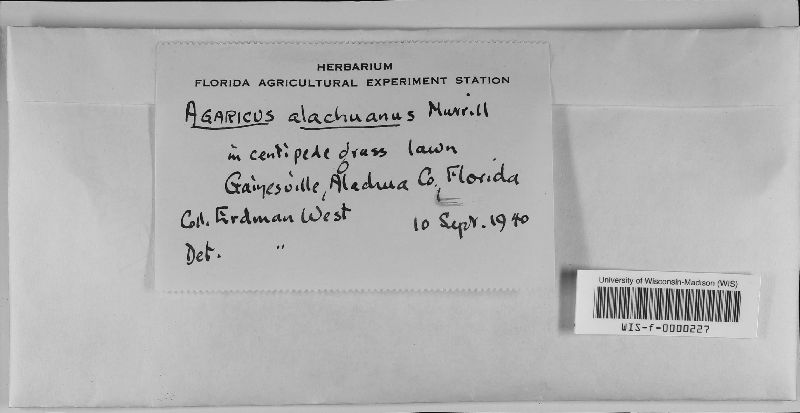 HERBARIUM
FLORIDA AGRICULTURAL EXPERIMENT STATION
AGARICUS alachuanus Murrill
in centipede grass lawn
Gainesville, Alachua Co., Florida
Col. Erdman West 10 Sept. 1940
Det. "
University of Wisconsin-Madison (WIS)
WIS-f-0000227